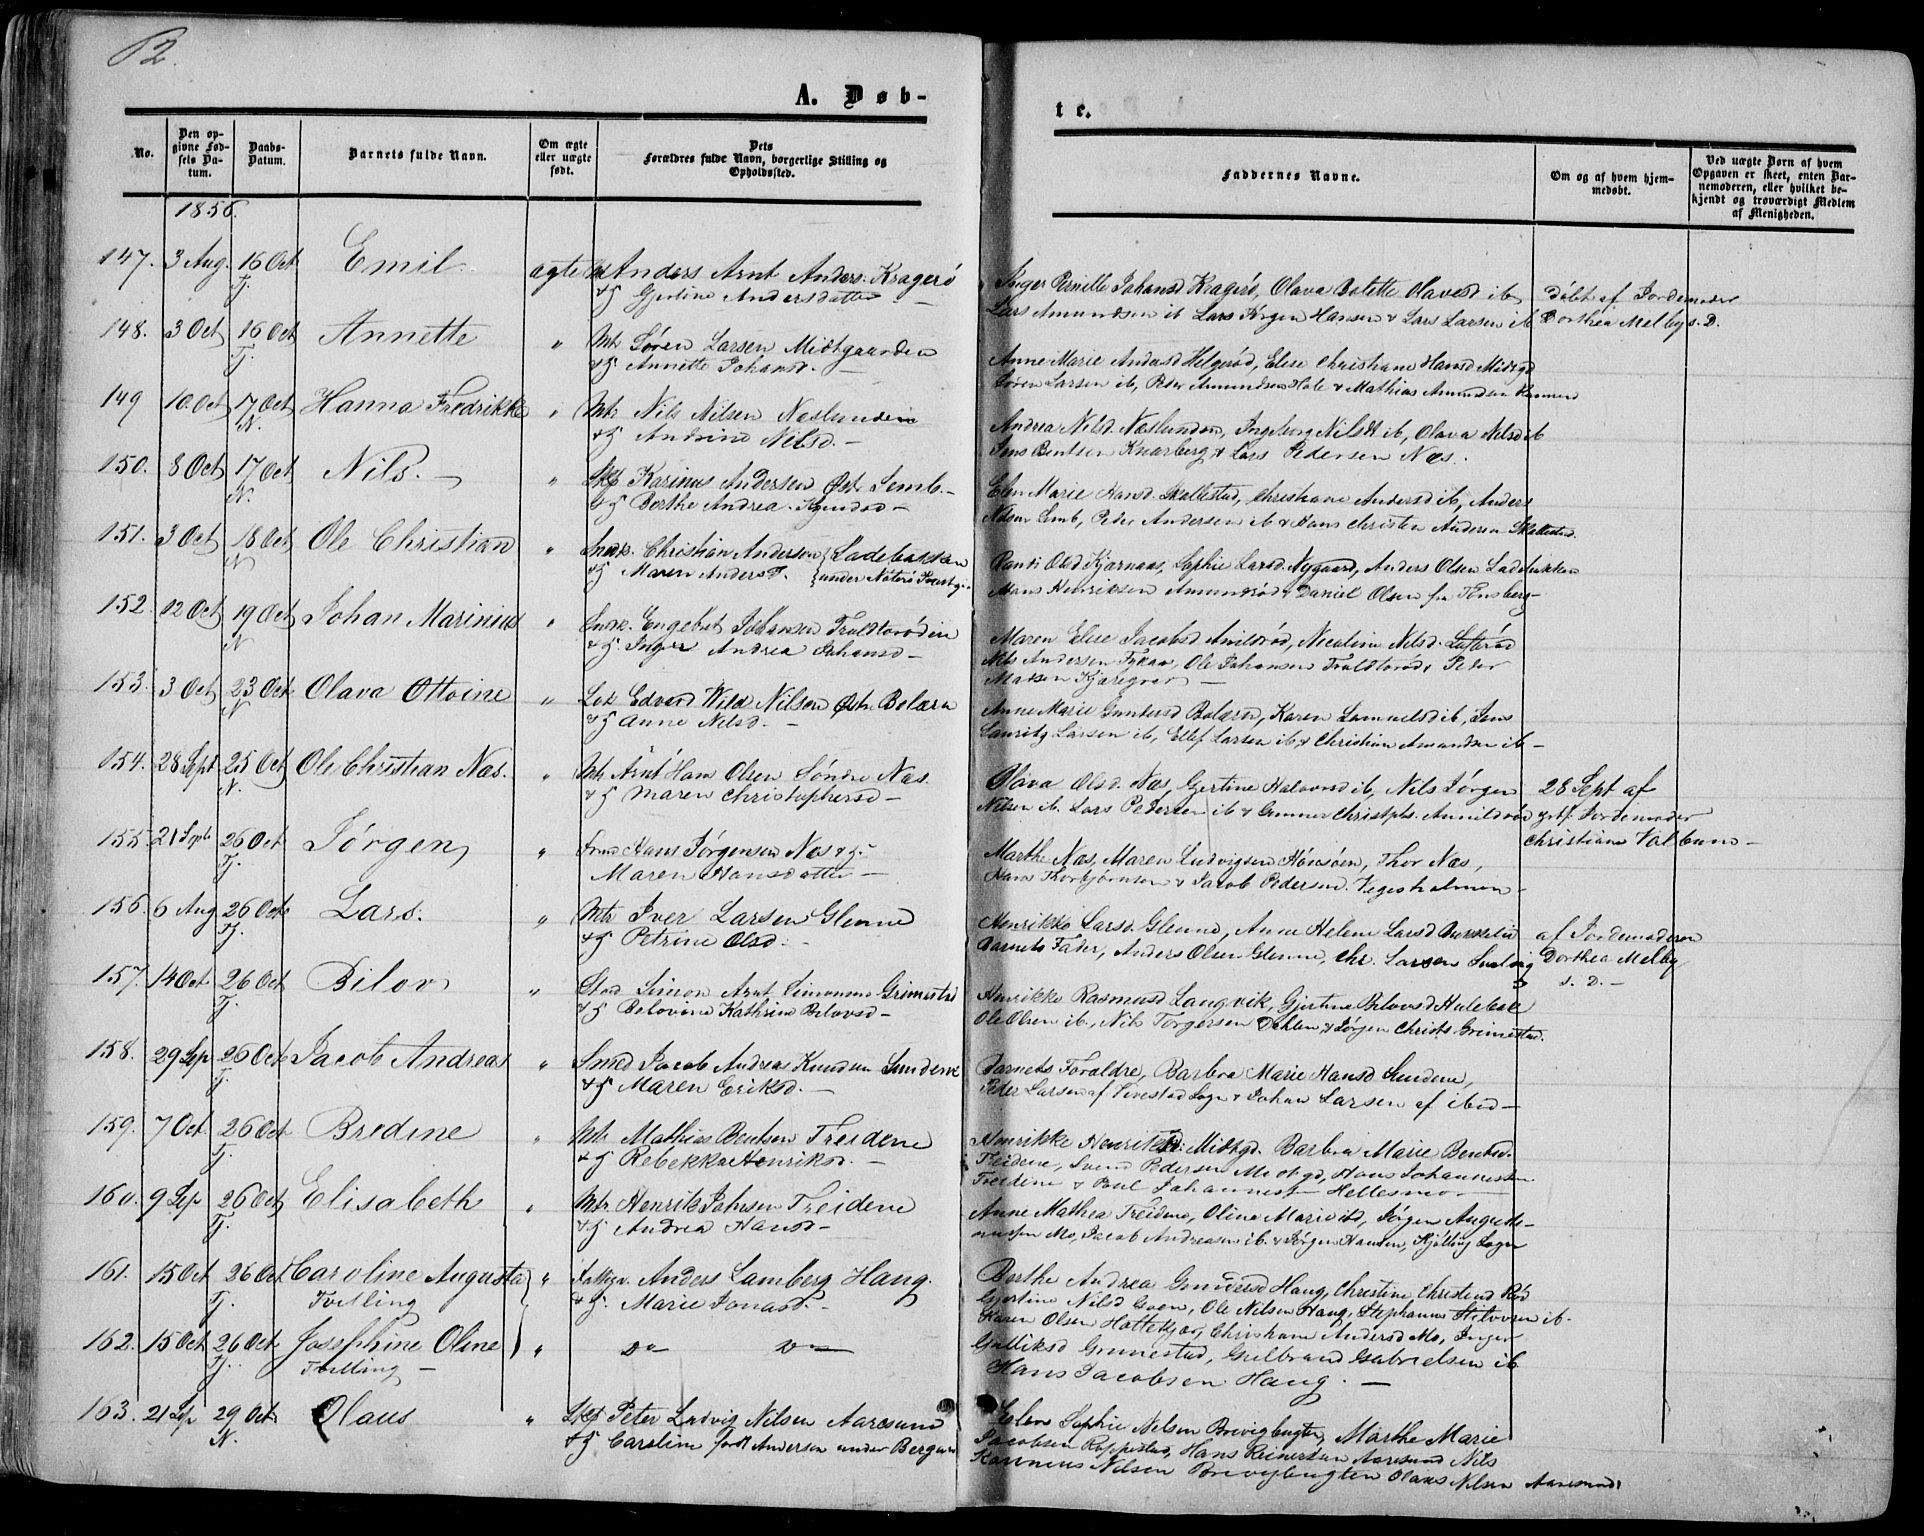 12.
A. Døb-
te.
No.
Den opgivne Fødsels Datum.
Daabs-Datum.
Barnets fulde Navn.
Om ægte eller uægte født.
Dets Forældres fulde Navn, borgerlige Stilling og Opholdssted.
Faddernes Navne.
Om og af hvem hjemmedøbt.
Ved uægte Børn af hvem Opgaven er skeet, enten Barnemoderen, eller hvilket bekjendt og troværdigt Medlem af Menigheden.
1856.
147. 3 Aug. 16 Oct Emil ægte Anders Arnt Anders. Kragerø
Tj. & H Gjertine Andersdatter
Inger Pernille Johansd Kragerø, Olava Bolette Olavesd ib,
Lars Amundsen ib Lars Jørgen Hansen & Lars Larsen ib
døbt af Jordemoder
Dorthea Melby s. D.
148. 3 Oct 16 Oct Annette " Mtr Søren Larsen Midtgaarden
Tj. & H Annette Johansd.
Anne Marie Andersd Helgerød, Elise Christiane Hansd Midtgd
Søren Larsen ib, Peder Amundsen Hole & Mathias Amundsen
149 10 Oct 17 Oct Hanna Fredrikke " Mtr Nils Nilsen Næslunden
N. & H Andrine Nilsd.
Andrea Nilsd. Næslunden, Ingeborg Nilsdt ib, Olava Nilsd ib
Jens Bentsen Knarberg & Lars Pedersen Næs.
150. 8 Oct 17 Oct Nils. " Karinus Andersen Østr Semb.
N. & H Berthe Andrea
Elen Marie Hansd. Skallestad, Christiane Andersd ib, Anders
Nilsen Semb, Peder Andersen ib & Hans Christen Andersen Skallestad.
151. 3 Oct 18 Oct Ole Christian " Christian Anderson Ladebakken
N & H Maren Andersd. under Nøterø
Olsd Kjørnaas, Sophie Larsd Nygaard, Anders Olsen Ladebakken
Hans Henriksen Amundrød & Daniel Olsen fra Tønsberg
152. 12 Oct 19 Oct Johan Marinius " Engebret Johansen
N & H Inger Andrea Johansd
Maren Elise Jacobsd Arnildrød, Nicoline Nilsd.
Nils Andersen Tykaas, Ole Johansen & Peder
Matsen
153. 3 Oct 23 Oct Olava Ottoine " Edvard Wild Nilsen Østr Bolæren
N & H Anne Nilsd.
Anne Marie Bolæren, Karen Samuelsd ib, Jens
Lauritz Larsen ib, Ellef Larsen ib & Christian Amundsen ib
154. 28 Sept 25 Oct Ole Christian Næs. " Mtr Arnt Hans Olsen Søndre Næs.
N. & H Maren Christophersd
Olava Olsd. Næs, Gjertine Halvorsd ib, Nils Jørgen
Nilsen ib. Lars Pedersen ib & Gunner Christphs. Arnildrød
28 Sept af
Jordemoder
Christiane Valbum
155 21 Septb 26 Oct Jørgen " Hans Jørgensen Næs & H
Tj. Maren Hansdatter
Marthe Næs, Maren Ludvigsen, Thor Næs,
Hans Thorbjørnsen & Jacob Pedersen Vegesholmen
156. 6 Aug 26 Oct Lars. " Mtr Iver Larsen Glenne
Tj. & H Petrine Olsd.
Henrikke Larsd. Glenne, Anne Helene Larsd
Barnets Fader, Anders Olsen Glenne, Chr. Larsen
af Jordemoderen
Dorthea Melby
s. D.
157. 14 Oct 26 Oct Bilov " Simon Arnt Simonsen Grimestad
Tj. & H Belovine Kathrine Belovsd
Henrikke Rasmusd Langvik, Gjertine Belovsd Holebæk
Ole Olsen ib, Nils Torgersen Dehlen & Jørgen Christs Grimestad.
158. 29 Sep 26 Oct Jacob Andreas " Smed Jacob Andreas Knudsen Sundene
Tj. & H Maren Eriksd.
Barnets Forældre, Barbra Marie Hansd Sundene,
Peder Larsen af Sogn & Johan Larsen af ibid
159. 7 Oct. 26 Oct Bredine " Mtr Mathias Bentsen Treidene
Tj. & H Rebekka Henriksd.
Henrikke Henriksd Midtgd. Barbra Marie Bentsd.
Treidene, Svend Pedersen Midtgd, Hans Johannessen
Treidene & Poul Johannest Hellesmo
160. 9 Sep 26 Oct Elisabeth " Mtr Henrik Johnsen Treidene
Tj. & H Andrea Hansd
Anne Mathea Treidene, Oline Marie ibd, Jørgen
Mo, Jacob Andreasen ib. & Jørgen Hansen, Kjølling Sogn
161. 15 Oct 26 Oct Caroline Augusta " Anders Lamberg Haug.
Tj. Tvilling & H Marie Jonasd.
Berthe Andrea Haug, Christine Christensd Røs
Gjertine Nilsd Goen, Ole Nilsen Haug, Stephanus ib.
162. 15 Oct 26 Oct Josephine Oline " Do Do
Tj. Tvilling
Karen Olsen Hottekjær, Christiane Andersd Mo, Inger
Gulliksd Grimestad, Gulbrand Gabrielsen ib
Hans Jacobsen Haug.
163. 21 Sep 29 Oct Olaus " Peter Ludvig Nilsen Aaresund
N. & H Caroline født Andersen under Bergan
Elen Sophie Nilsen Brevigbugten, Marthe Marie
Jacobsen Roppestad, Hans Reinertsen Aaresund Nils
Nilsen Brevigbugten Olaus Nilsen Aaresund